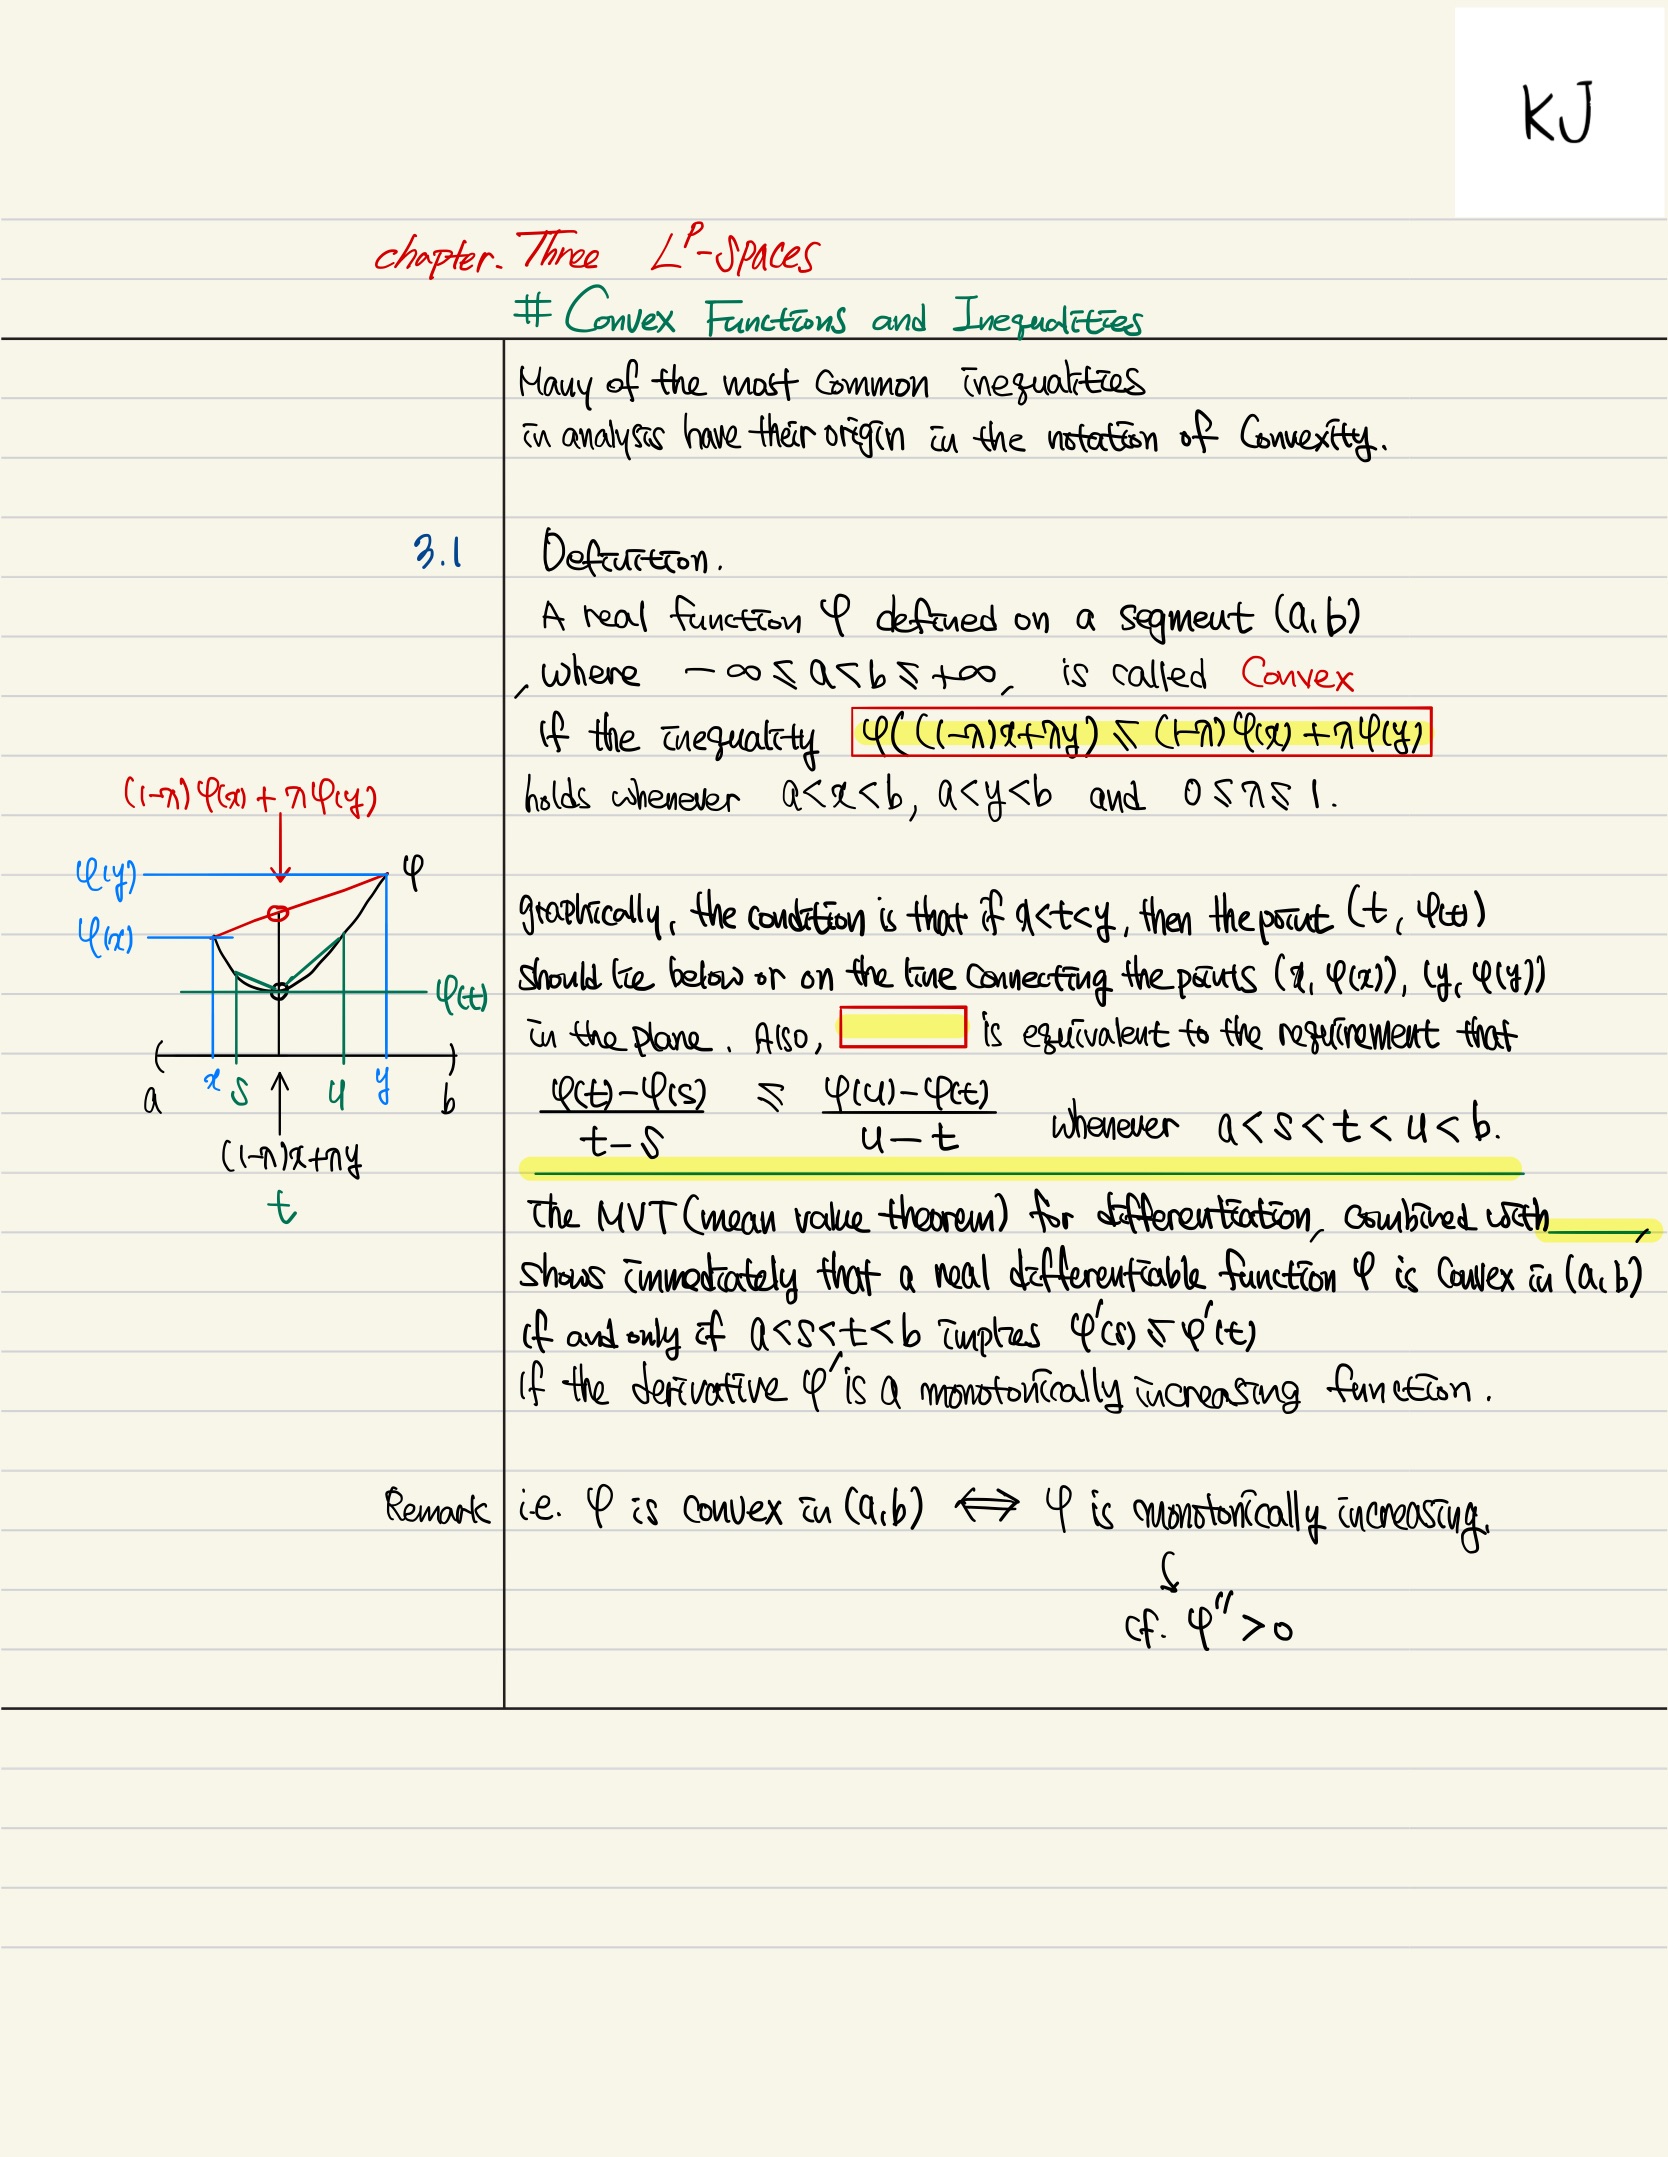 KJ
chapter. Three L^p-spaces
# Convex Functions and Inequalities
Many of the most common inequalities
in analysis have their origin in the notation of Convexity.
3.1 Definition.
A real function φ defined on a segment (a,b)
, where -∞ ≤ a < b ≤ +∞, is called Convex
if the inequality φ((1-λ)x+λy) ≤ (1-λ)φ(x)+λφ(y)
holds whenever a<x<b, a<y<b and 0≤λ≤1.
(1-λ)φ(x) + λφ(y)
φ(y)
φ
φ(x)
φ(t)
a x s u y b
(1-λ)x+λy
t
graphically, the condition is that if x<t<y, then the point (t, φ(t))
should lie below or on the line connecting the points (x, φ(x)), (y, φ(y))
in the plane. Also, is equivalent to the requirement that
φ(t)-φ(s) / t-s ≤ φ(u)-φ(t) / u-t whenever a<s<t<u<b.
The MVT (mean value theorem) for differentiation, combined with ,
shows immediately that a real differentiable function φ is Convex in (a,b)
if and only if a<s<t<b implies φ'(s) ≤ φ'(t)
if the derivative φ' is a monotonically increasing function.
Remark i.e. φ is convex in (a,b) ⟺ φ is monotonically increasing.
cf. φ'' > 0